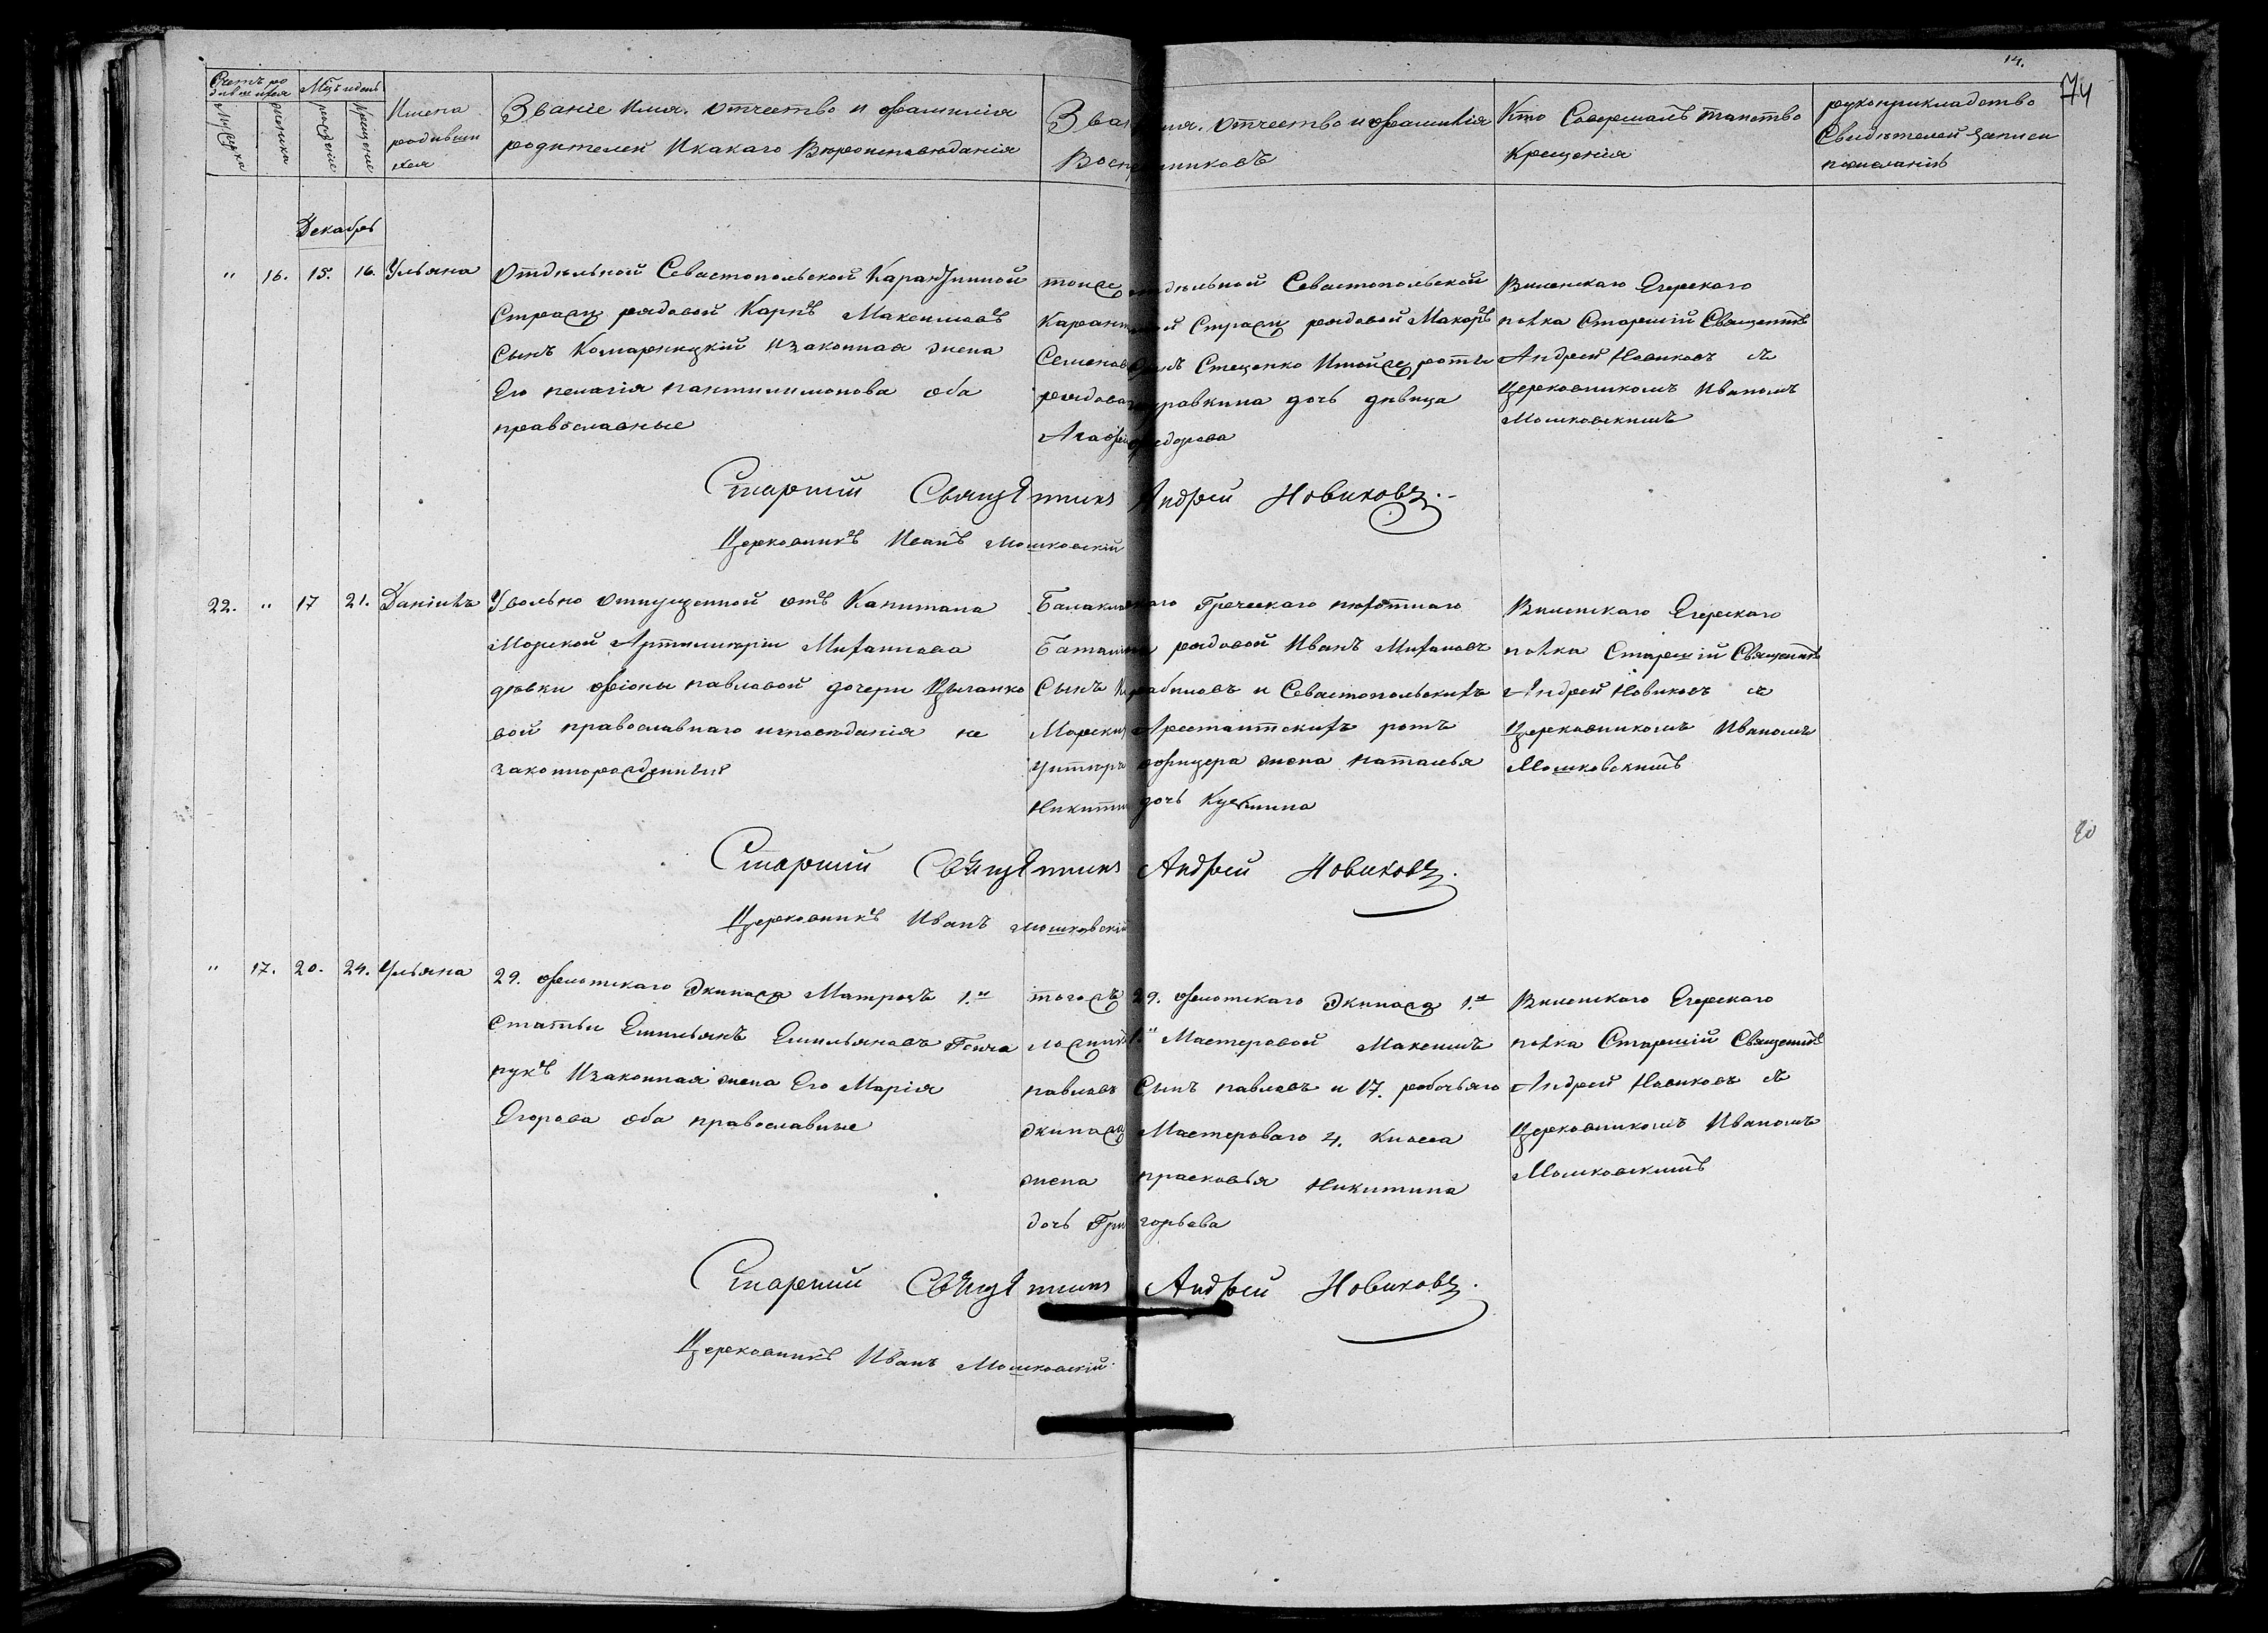 14.
74
Счетъ ро
дившихся
Мѣс. и день
Мужеска
женска
рожденіе
Крещеніе
Имена
родивши
хся
Званіе Имя. Отчество и фамилія
родителей И какаго Вѣроисповѣданія
Зван имя. Отчество и фамилія
Воспр емниковъ
Кто Совершалъ таинство
Крещенія
рукоприкладство
Свидѣтелей записи
по желанію
Декабрь
" 16. 15. 16. Ульяна
Отдѣльной Севастопольской Карантинной
Стражи рядовой Карпъ Максимовъ
Сынъ Комарницкій И законная жена
Его пелагія пантилимонова оба
православные
тойже отдѣльной Севастопольской
Карантинной Стражи рядовой Макаръ
Семеновъ Сынъ Стеценко И тойже роты
рядоваго Журавкина дочь дѣвица
Агафія Федорова
Виленскаго Егерскаго
полка Старшій Священникъ
Андрей Новиковъ съ
Церковникомъ Иваномъ
Мошковскимъ
Старшій Священникъ Андрей Новиковъ.
Церковникъ Иванъ Мошковскій
22. " 17 21. Даніилъ
Увольно отпущенной отъ Капитана
Морской Артиллеріи Михайлова
дѣвки фіоны павловой дочери Цыганко
вой православнаго исповѣданія не
законнорожденный
Балаклавскаго Греческаго пѣхотнаго
Баталіона рядовой Иванъ Михайловъ
Сынъ и Севастопольскихъ
Морскихъ Арестантскихъ ротъ
унтеръ офицера жена Наталья
Никитина дочь Кузьмина
Виленскаго Егерскаго
полка Старшій Священникъ
Андрей Новиковъ съ
Церковникомъ Иваномъ
Мошковскимъ
20
Старшій Священникъ Андрей Новиковъ.
Церковникъ Иванъ Мошковскій
" 17. 20. 24. Ульяна
29. флотскаго Экипажа Матрозъ 1.й
Статьи Емильянъ Емильяновъ Гонча
рукъ И законная жена Его Марія
Егорова оба православные
тогожъ 29. флотскаго Экипажа 1.й
Мастеровой Максимъ
павловъ Сынъ павловъ и 17. рабочаго
экипажа Мастероваго 4. класса
жена прасковья Никитина
дочь Григорьева
Виленскаго Егерскаго
полка Старшій Священникъ
Андрей Новиковъ съ
Церковникомъ Иваномъ
Мошковскимъ
Старшій Священникъ Андрей Новиковъ.
Церковникъ Иванъ Мошковскій